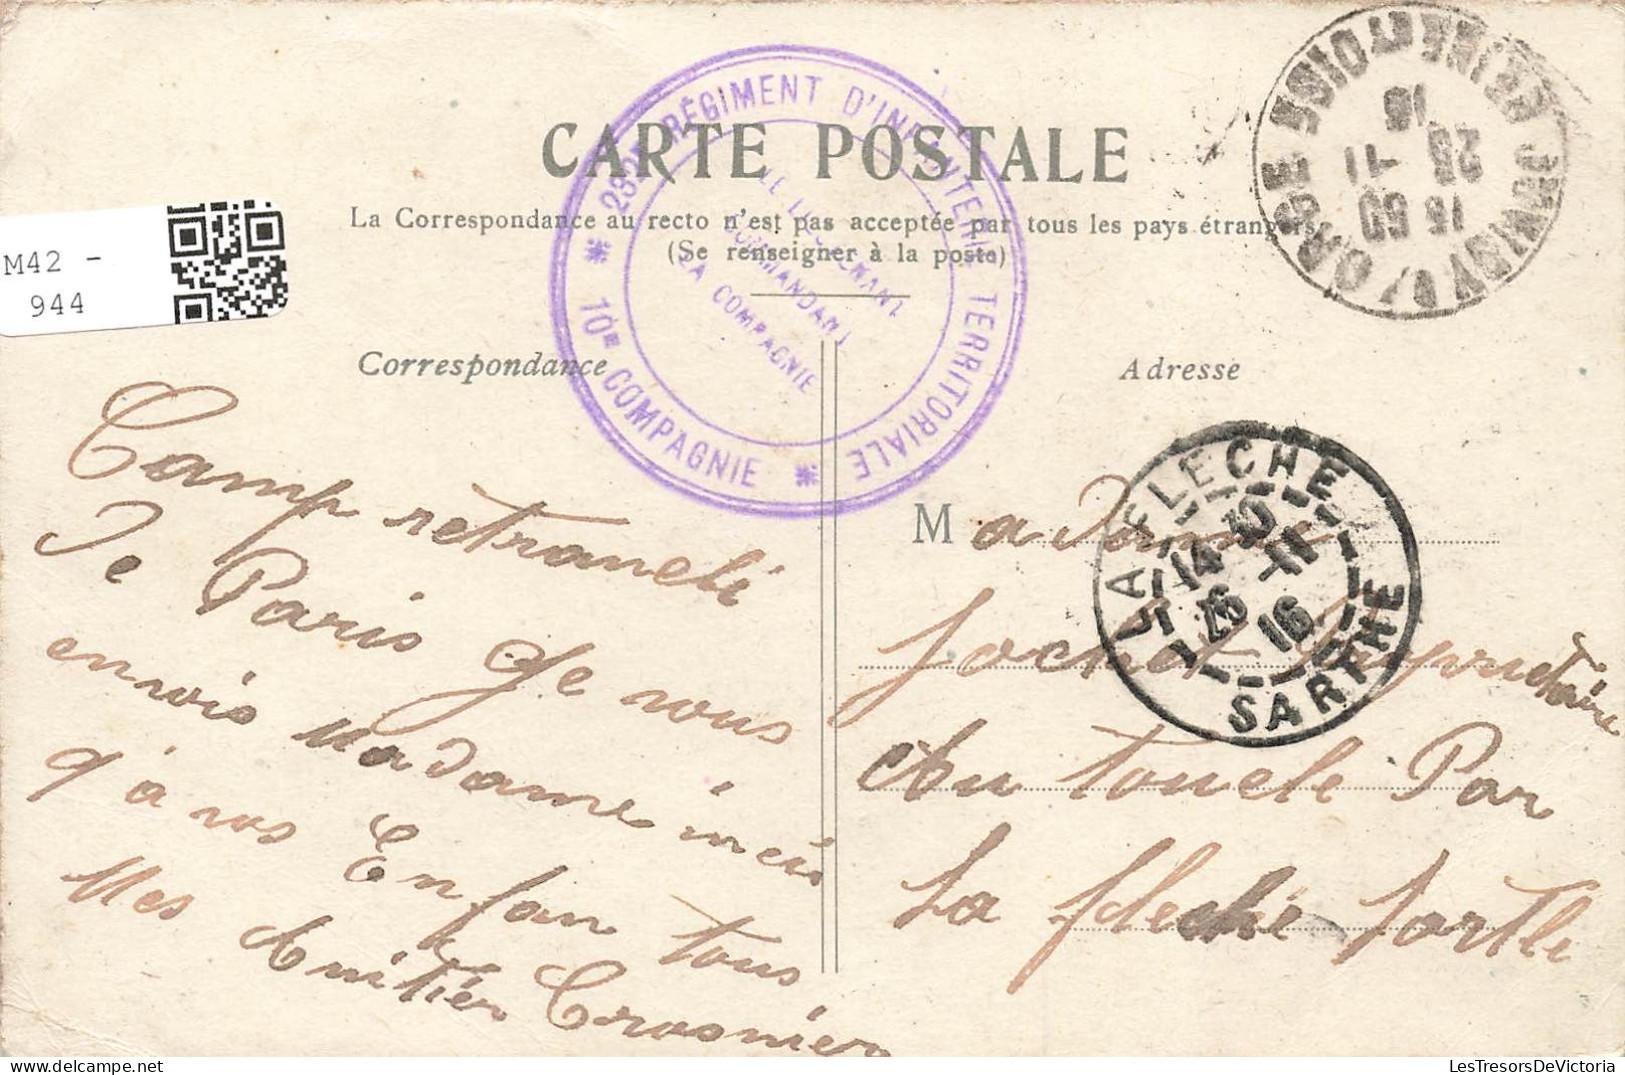 CARTE POSTALE
La Correspondance au recto n'est pas acceptée par tous les pays étrangers
(Se renseigner à la poste)
RÉGIMENT D'INFANTERIE TERRITORIALE
10E COMPAGNIE
LE LIEUTENANT
COMMANDANT
LA COMPAGNIE
15 50
25 -11
16
M42 -
944
Correspondance
Camp retranché
De Paris Je vous
envois Madame
q'à vos Enfan tous
Mes Amitiés Crosnier
Adresse
LA FLECHE
14 30
26 -11
16
SARTHE
Madame
Jochet Propriétaire
Au touche Par
La flèche Sarthe
LesTresorsDeVictoria